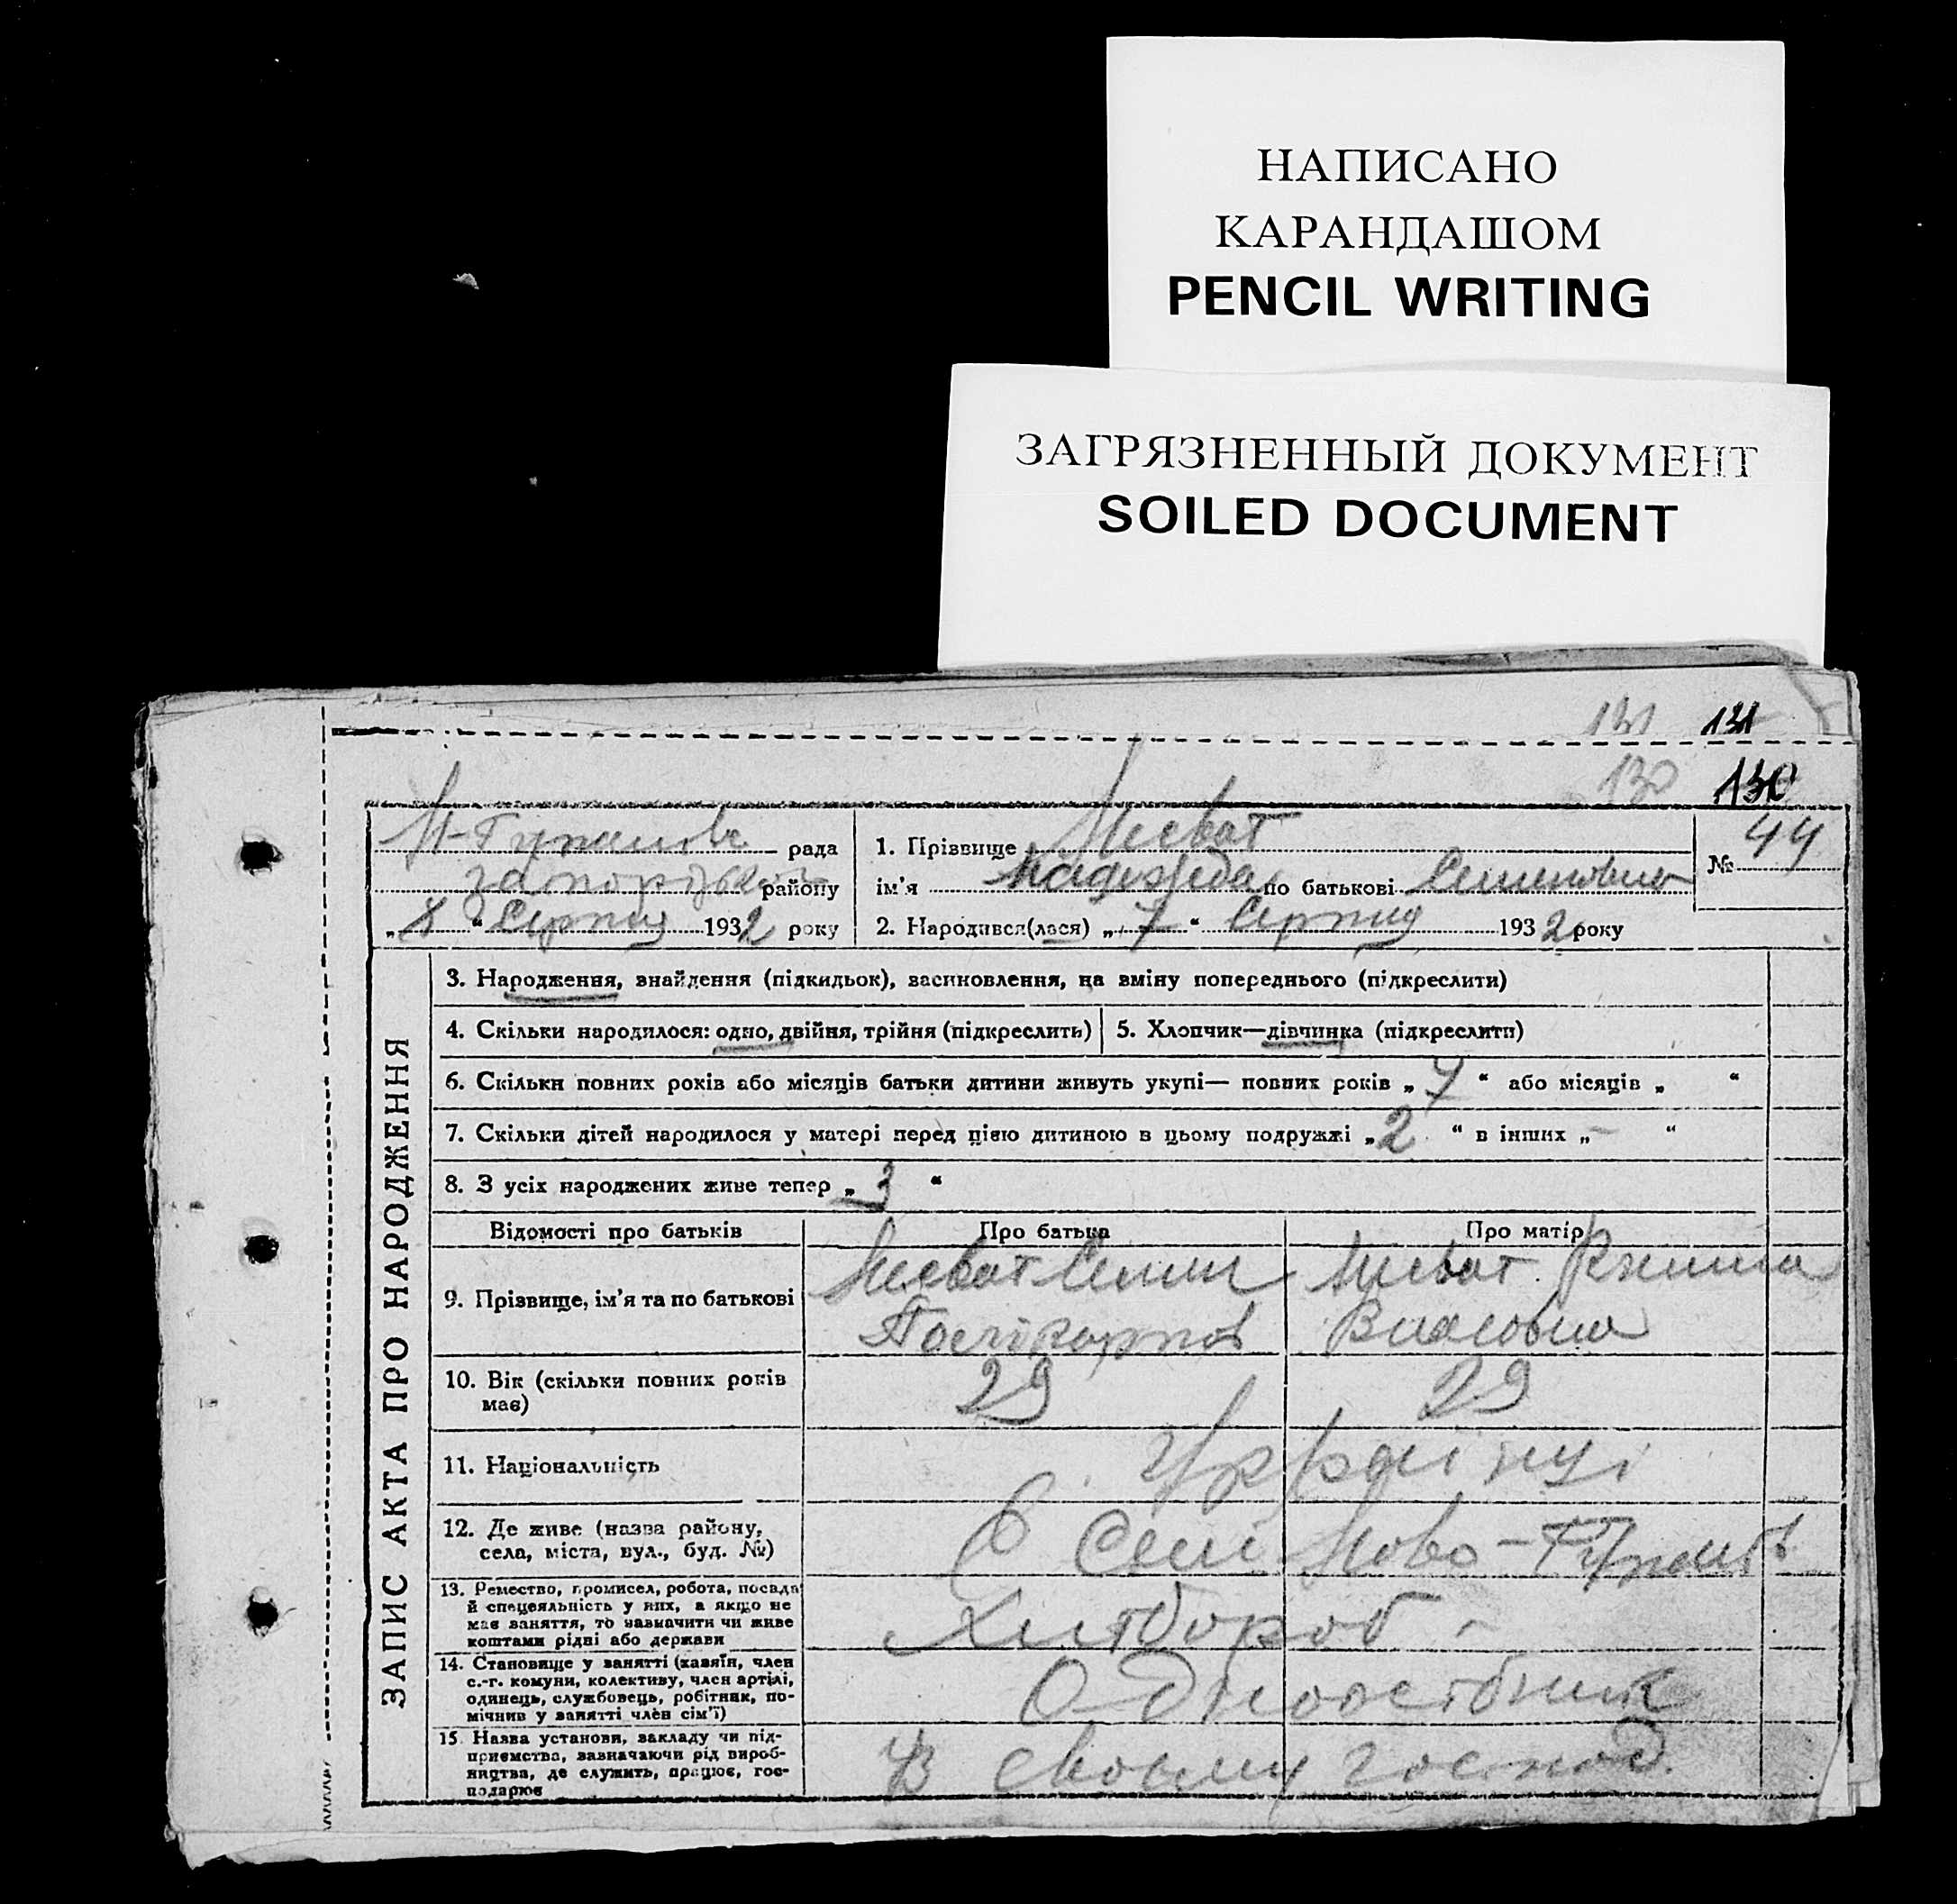 НАПИСАНО
КАРАНДАШОМ
PENCIL WRITING
ЗАГРЯЗНЕННЫЙ ДОКУМЕНТ
SOILED DOCUMENT
131 131
130 130
рада
району
„8“ Серпня 1932 року
1. Прізвище
ім'я Надежда по батькові Семеновна
2. Народився(лася) „7“ Серпня 1932 року
№ 44
ЗАПИС АКТА ПРО НАРОДЖЕННЯ
3. Народження, знайдення (підкидьок), засиновлення, на зміну попереднього (підкреслити)
4. Скільки народилося: одно, двійня, трійня (підкреслить)
5. Хлопчик—дівчинка (підкреслити)
6. Скільки повних років або місяців батьки дитини живуть укупі— повних років „7“ або місяців „ “
7. Скільки дітей народилося у матері перед цією дитиною в цьому подружжі „2“ в інших „-“
8. З усіх народжених живе тепер „3“
Відомості про батьків Про батька Про матір
9. Прізвище, ім'я та по батькові
10. Вік (скільки повних років має) 29 29
11. Національність Українці
12. Де живе (назва району, села, міста, вул., буд. №) С Селі Ново-
13. Ремество, промисел, робота, посада
й спеціяльність у них, а якщо не
має заняття, то зазначити чи живе
коштами рідні або держави
Хлібороб -
14. Становище у занятті (хазяїн, член
с.-г. комуни, колективу, член артілі,
одинець, службовець, робітник, по-
мічник у занятті член сім'ї)
15. Назва установи, закладу чи під-
приємства, зазначаючи рід вироб-
ництва, де служить, працює, гос-
подарює
своєму господ.